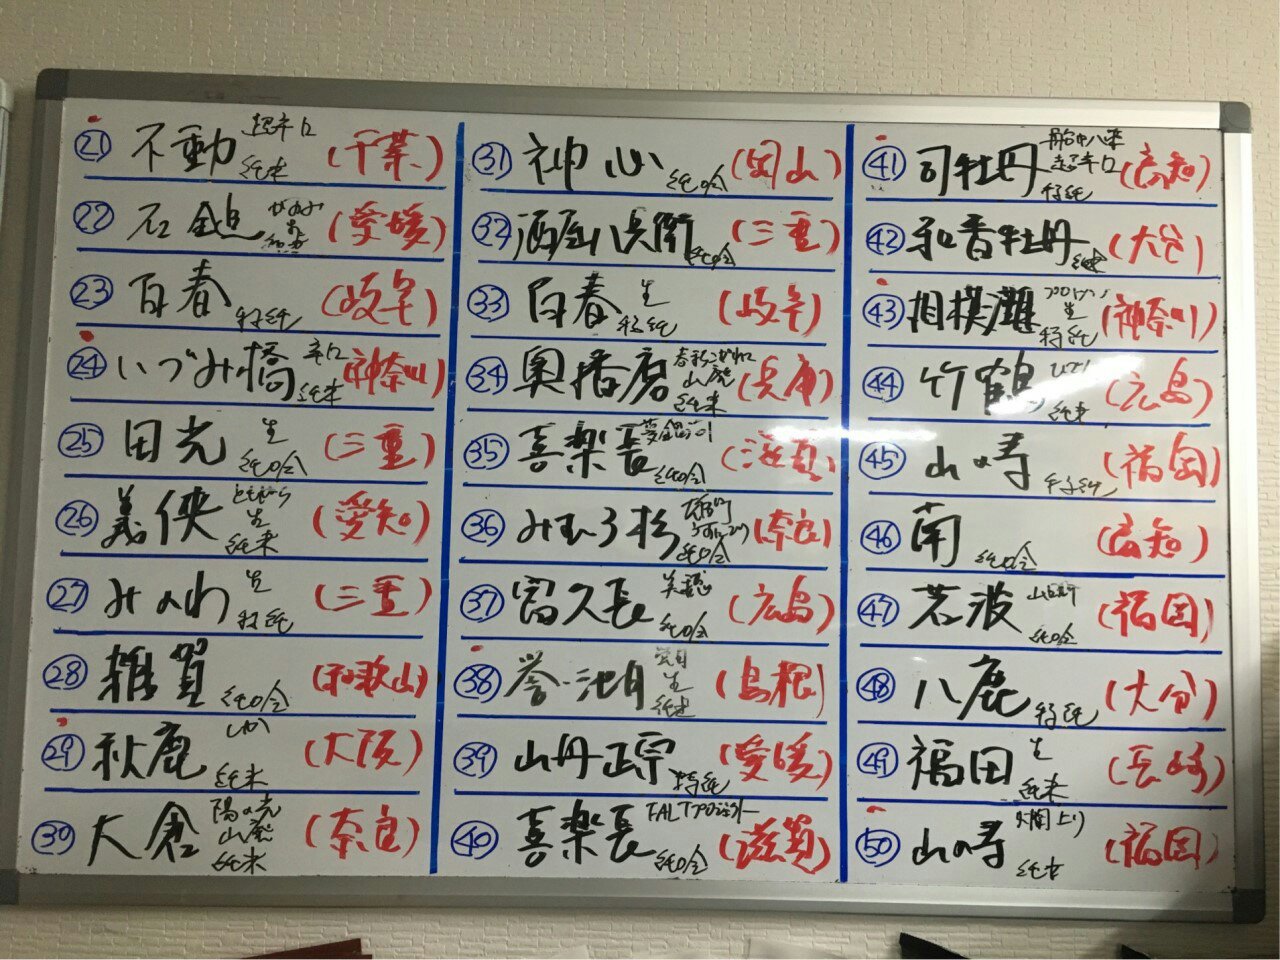 21 不動 超辛口 純米 (千葉)
22 石鎚 (愛媛)
23 百春 特純 (岐阜)
24 いづみ橋 辛口 純米 (神奈川)
25 田光 生 純吟 (三重)
26 義侠 生 純米 (愛知)
27 みのわ 生 特純 (三重)
28 雑賀 純吟 (和歌山)
29 秋鹿 純米 (大阪)
30 大倉 陽の光 山廃 純米 (奈良)
31 神心 純吟 (岡山)
32 酒屋八兵衛 純吟 (三重)
33 百春 生 特純 (岐阜)
34 奥播磨 山廃 純米 (兵庫)
35 喜楽長 純吟 (滋賀)
36 みむろ杉 純吟 (奈良)
37 富久長 純吟 (広島)
38 誉池月 生 (島根)
39 山丹正宗 特純 (愛媛)
40 喜楽長 純吟 (滋賀)
41 司牡丹 船中八策 超辛口 特純 (高知)
42 和香牡丹 純米 (大分)
43 相模灘 生 特純 (神奈川)
44 竹鶴 純米 (広島)
45 山の寿 特純 (福岡)
46 南 純吟 (高知)
47 若波 純吟 (福岡)
48 八鹿 特純 (大分)
49 福田 生 純米 (長崎)
50 山の寿 純米 (福岡)